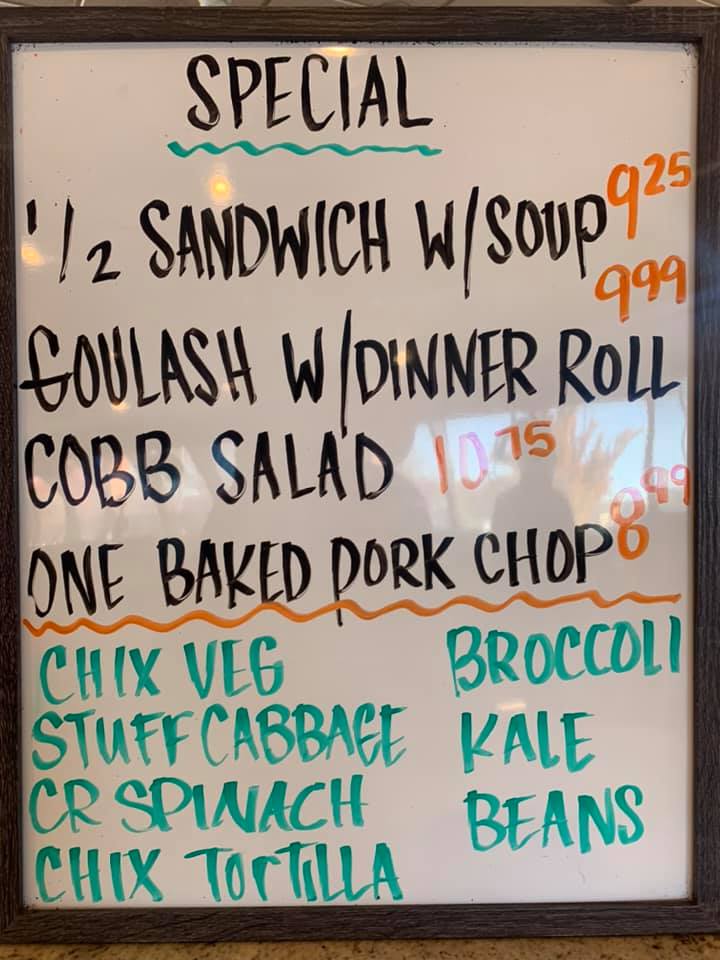 SPECIAL
1/2 SANDWICH W/SOUP 925
999
GOULASH W/DINNER ROLL
COBB SALAD 1075
ONE BAKED PORK CHOP 899
CHIX VEG
STUFF CABBAGE
CR SPINACH
CHIX TORTILLA
BROCCOLI
KALE
BEANS